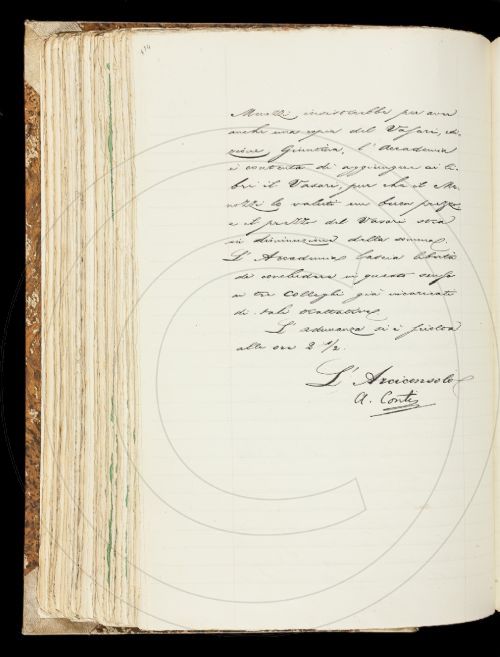 174
insisterebbe per aver
anche una copia del Vasari, edi-
zione Giuntina, l'Accademia
è contenta di aggiungere ai li-
bri il Vasari, pur che il Ma-
nozzi lo valuti un buon prezzo
e il prezzo del Vasari stia
in diminuzione della somma.
L'Accademia lascia libertà
di concludere in questo senso
ai tre Colleghi già incaricati
di tali trattative.
L'adunanza si è sciolta
alle ore 2 1/2.
L'Arciconsolo
A. Conti